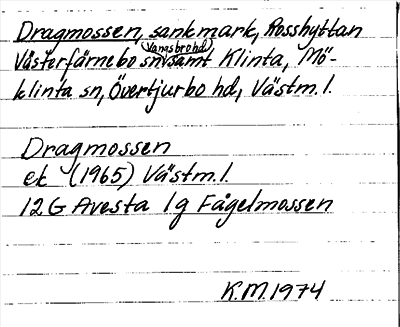 Dragmossen, sankmark, Rosshyttan
Vangsbro hd,
Västerfärnebo sn, samt Klinta, Mö-
klinta sn, Övertjurbo hd, Västm.l.
Dragmossen
ek (1965) Västm.l.
12G Avesta 1g Fågelmossen
K.M. 1974